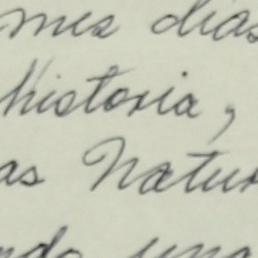 mes días
historia,
as Natur
ndo una